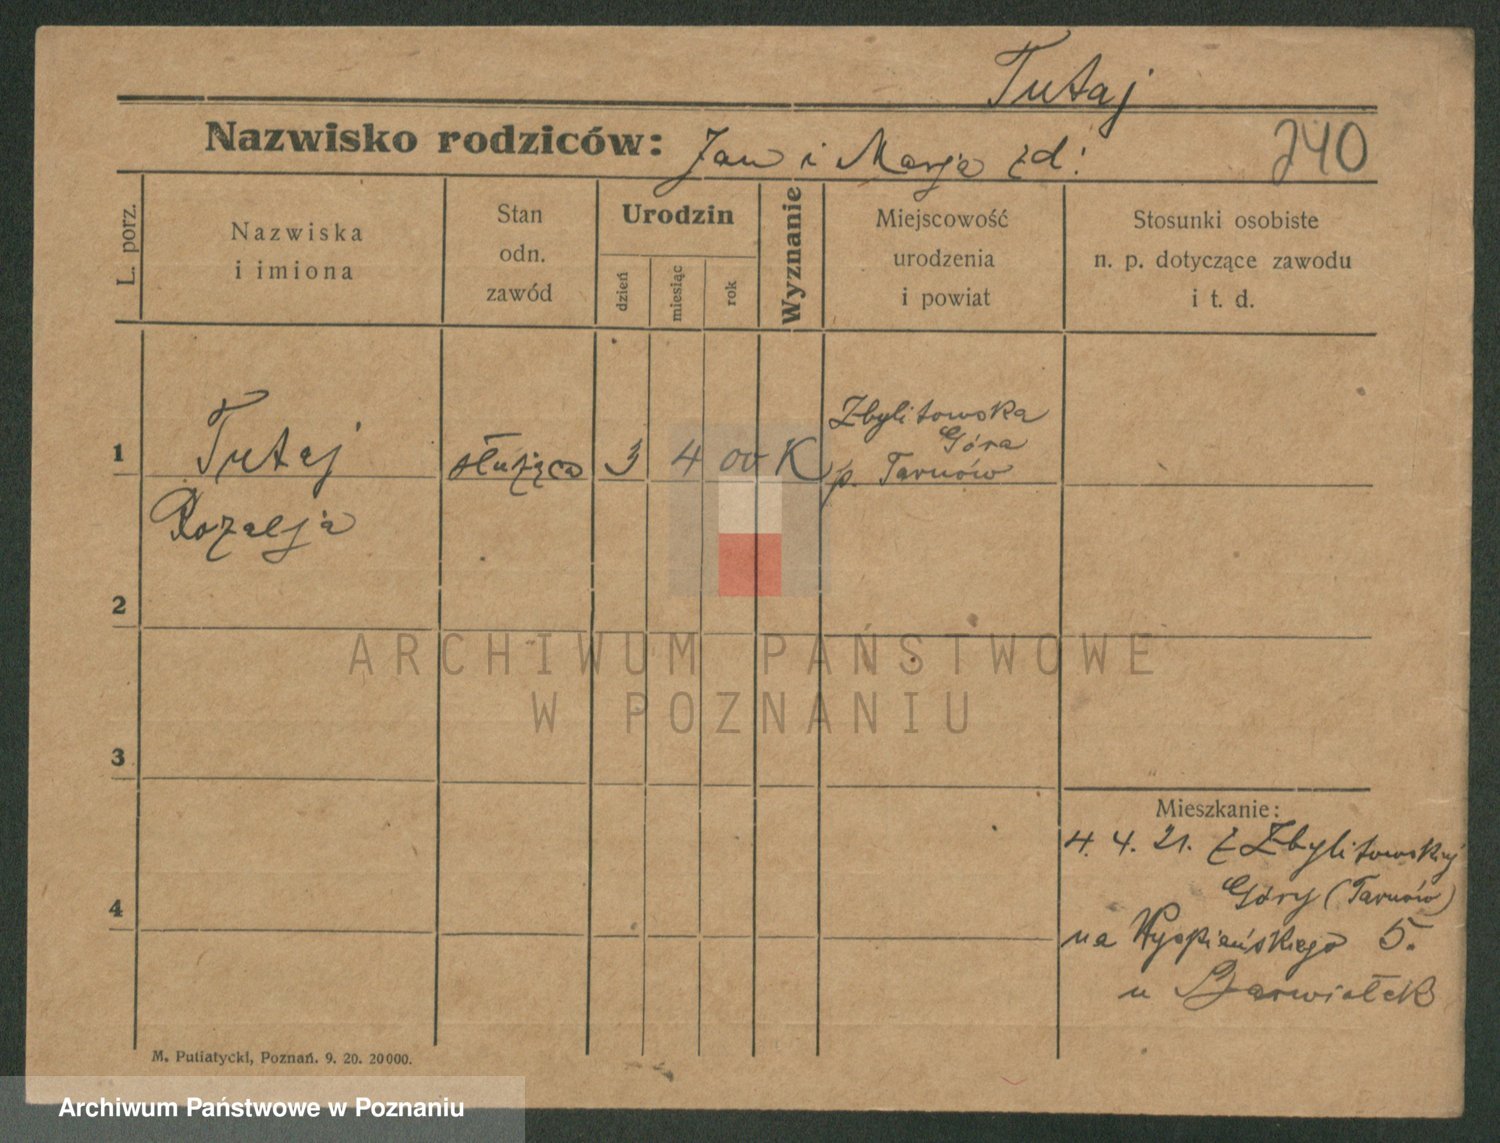 Tutaj
Nazwisko rodziców: Jan i Marja zd:
240
L. porz.
Nazwiska
i imiona
Stan
odn.
zawód
Urodzin
dzień
miesiąc
rok
Wyznanie
Miejscowość
urodzenia
i powiat
Stosunki osobiste
n. p. dotyczące zawodu
i t. d.
1
Tutaj
Rozalja
służąca
3
4
00
K
Zbylitowska
Góra
p. Tarnów
2
3
4
Mieszkanie:
4. 4. 21. z Zbylitowskiej
Góry (Tarnów)
na Wyspiańskiego 5.
u
M. Putiatycki, Poznań. 9. 20. 20000.
ARCHIWUM PAŃSTWOWE
W POZNANIU
Archiwum Państwowe w Poznaniu